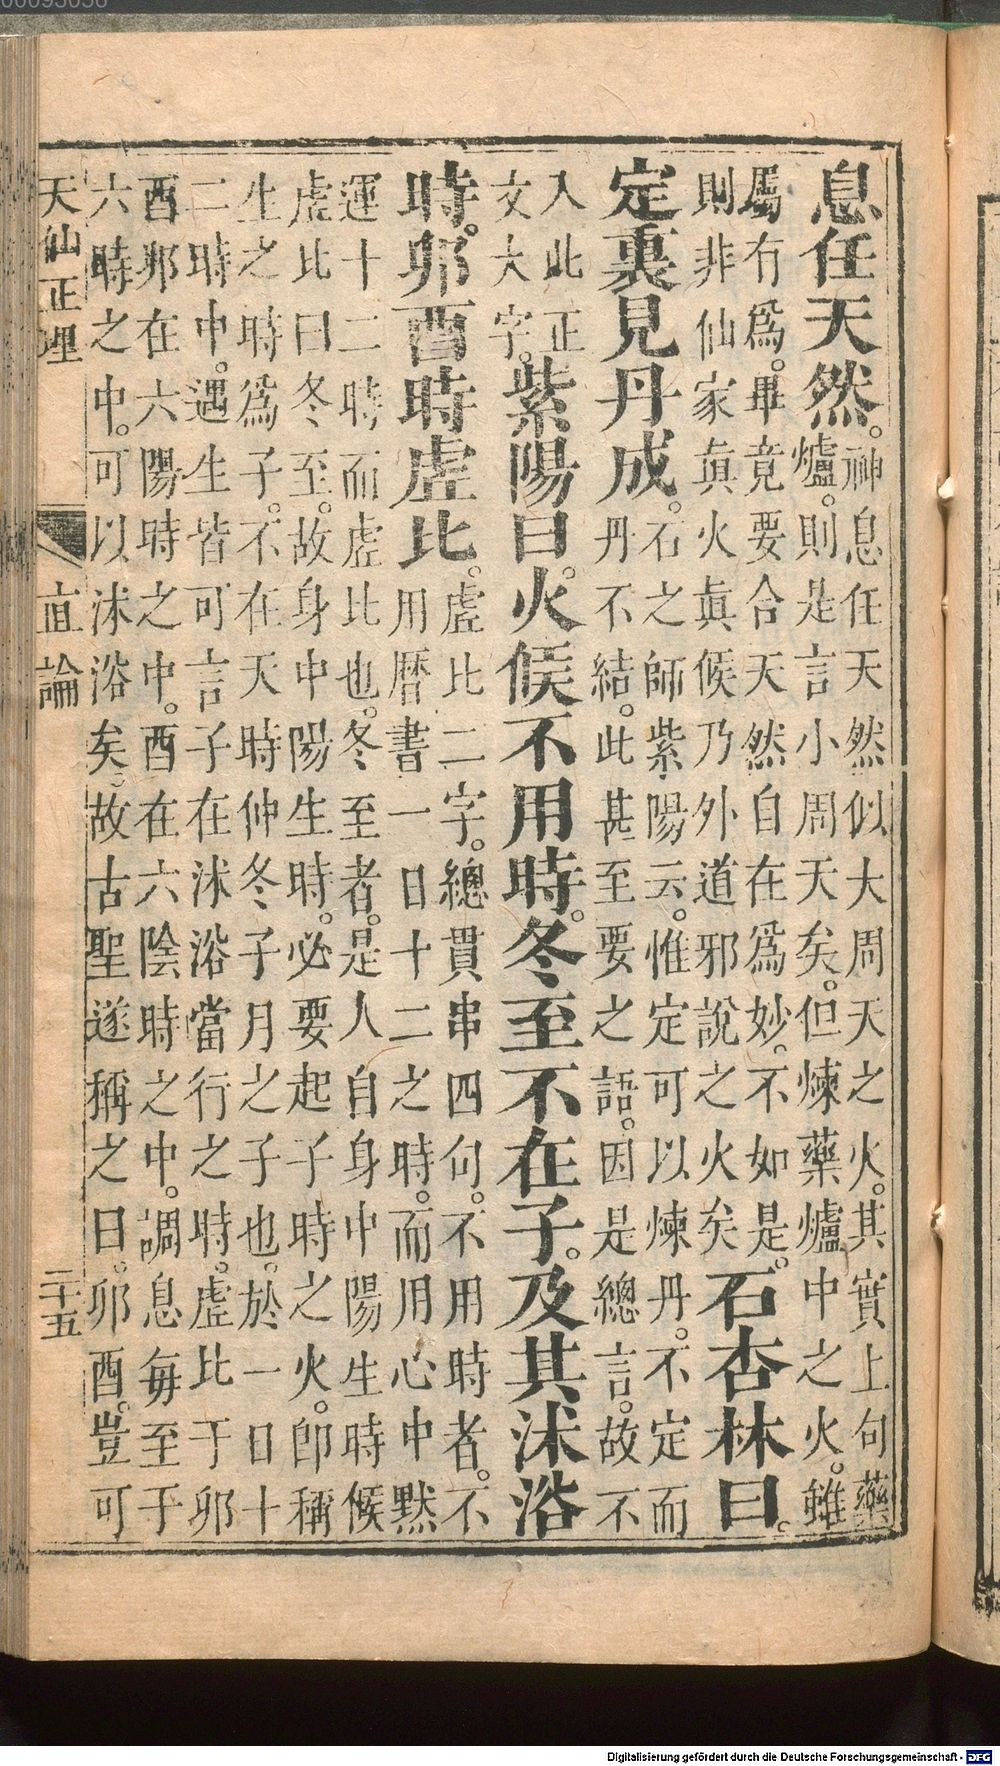 息任天然。
神息任天然似大周天之火。其實上句藥
爐。則是言小周天矣。但煉藥爐中之火。雖
屬有爲。畢竟要合天然自在爲妙。不如是。
則非仙家眞火眞候乃外道邪說之火矣
石杏林曰。
定裏見丹成。
石之師紫陽云。惟定可以煉丹。不定而
丹不結。此甚至要之語。因是總言。故不
入此正
文大字。
紫陽曰。火候不用時。冬至不在子。及其沐浴
時。卯酉時虛比。
虛比二字。總貫串四句。不用時者。不
用曆書一日十二之時。而用心中黙
運十二時而虛比也。冬至者。是人自身中陽生時候
虛比曰冬至。故身中陽生時。必要起子時之火。卽稱
生之時爲子。不在天時仲冬子月之子也。於一日十
二時中。遇生皆可言子在沐浴當行之時。虛比于卯
酉卯在六陽時之中。酉在六陰時之中。調息每至于
六時之中。可以沐浴矣。故古聖遂稱之曰。卯酉。豈可
天仙正理 直論 二十五
Digitalisierung gefördert durch die Deutsche Forschungsgemeinschaft - DFG